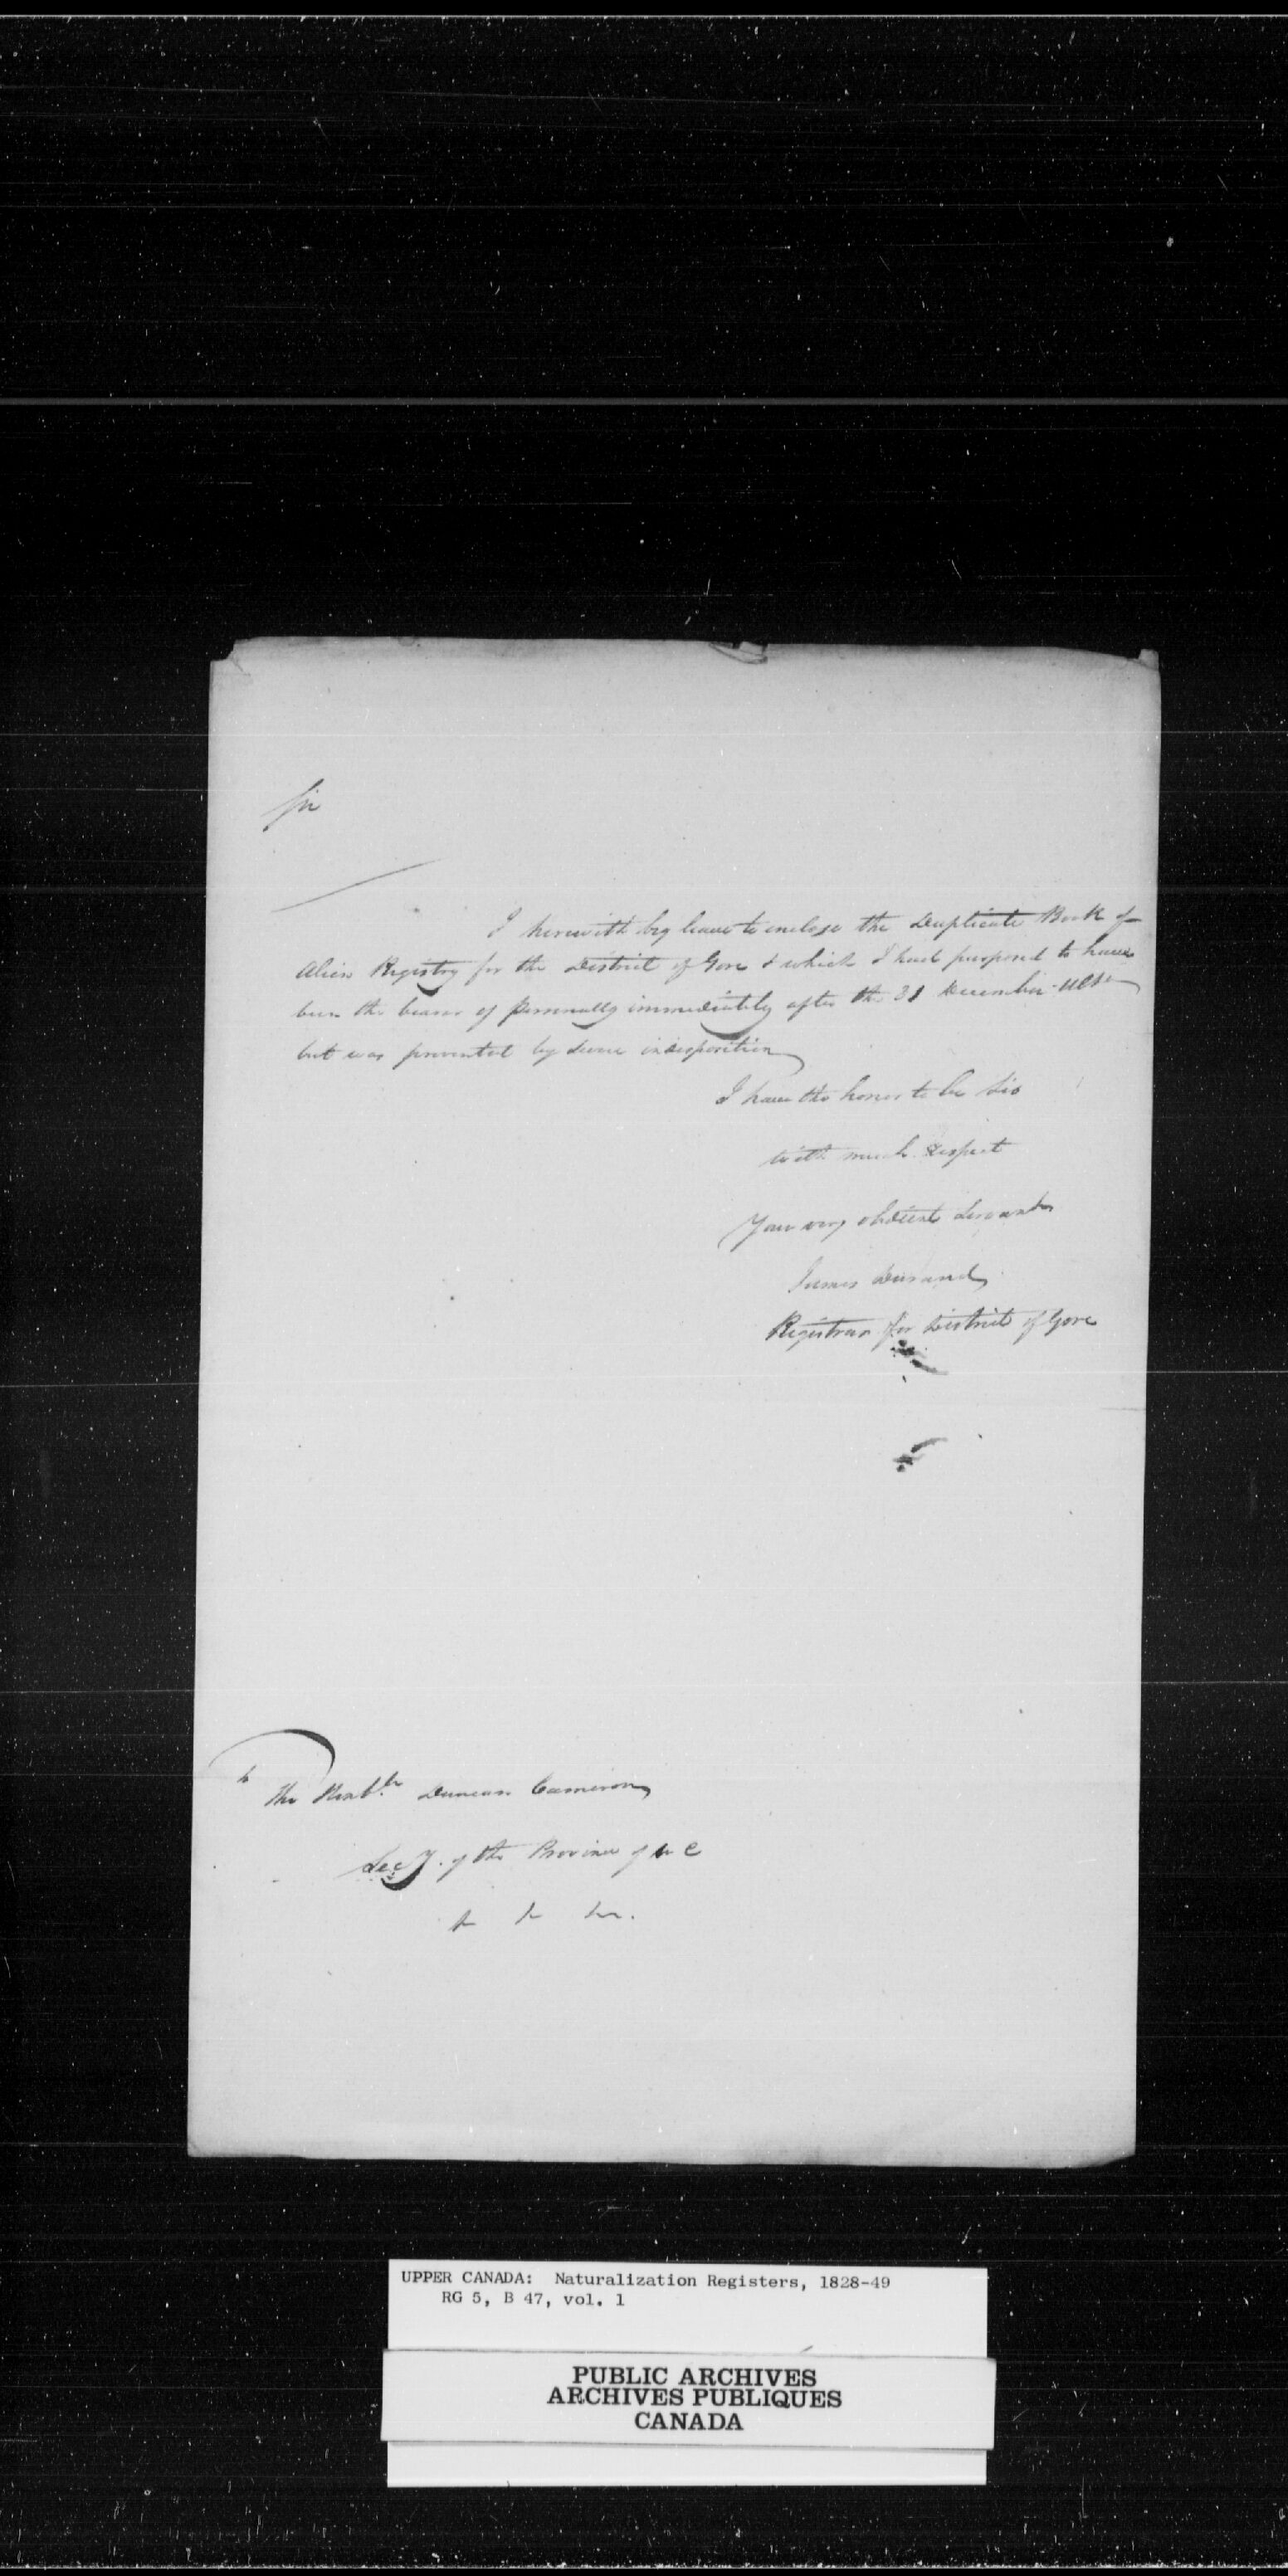 Sir
I herewith beg leave to enclose the Duplicate Book of
Alien Registry for the District of Gore & which I had purposed to have
been the bearer of personally immediately after the 31 December Ulto
but was prevented by severe indisposition
I have the honor to be Sir
with much respect
Your very obedient Servant
James Durand
Registrar for District of Gore
To The Honble Duncan Cameron
Secy. of the Province of U C
&c &c &c.
UPPER CANADA: Naturalization Registers, 1828-49
RG 5, B 47, vol. 1
PUBLIC ARCHIVES
ARCHIVES PUBLIQUES
CANADA